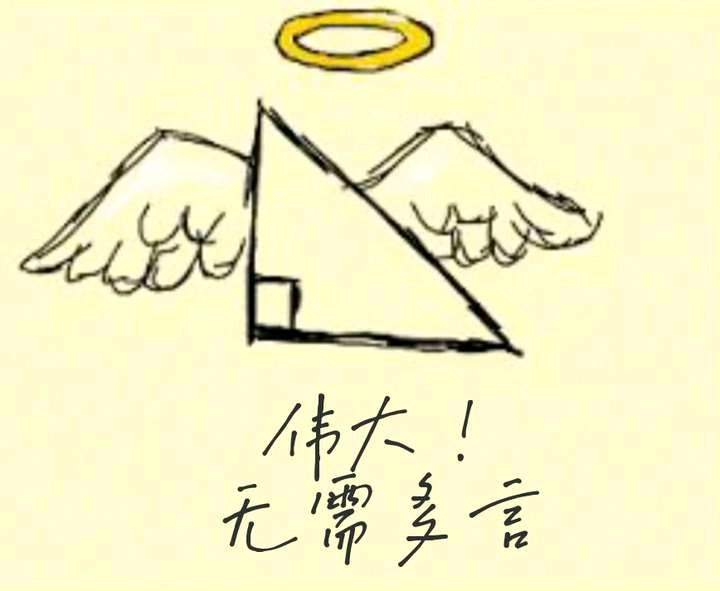 伟大！
无需多言